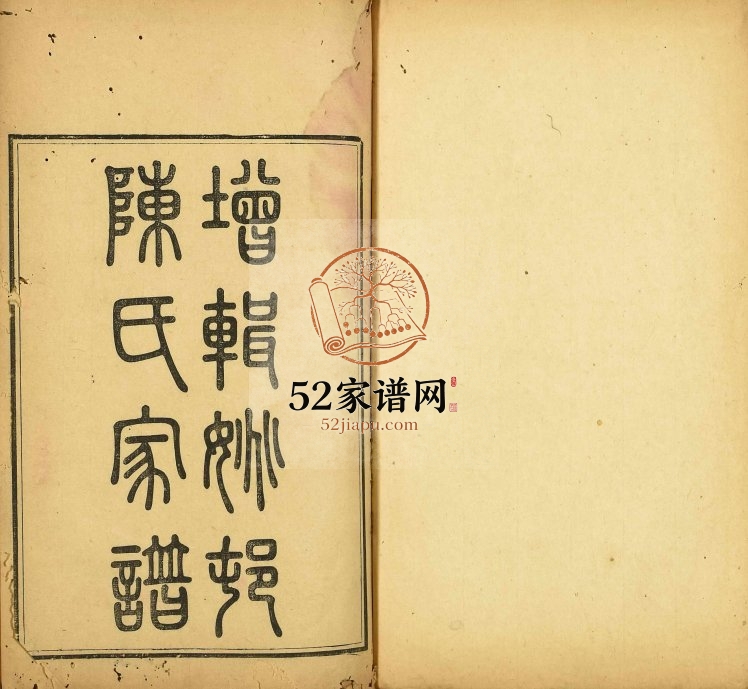 增輯姚邨
陳氏家譜
52家谱网
52jiabu.com